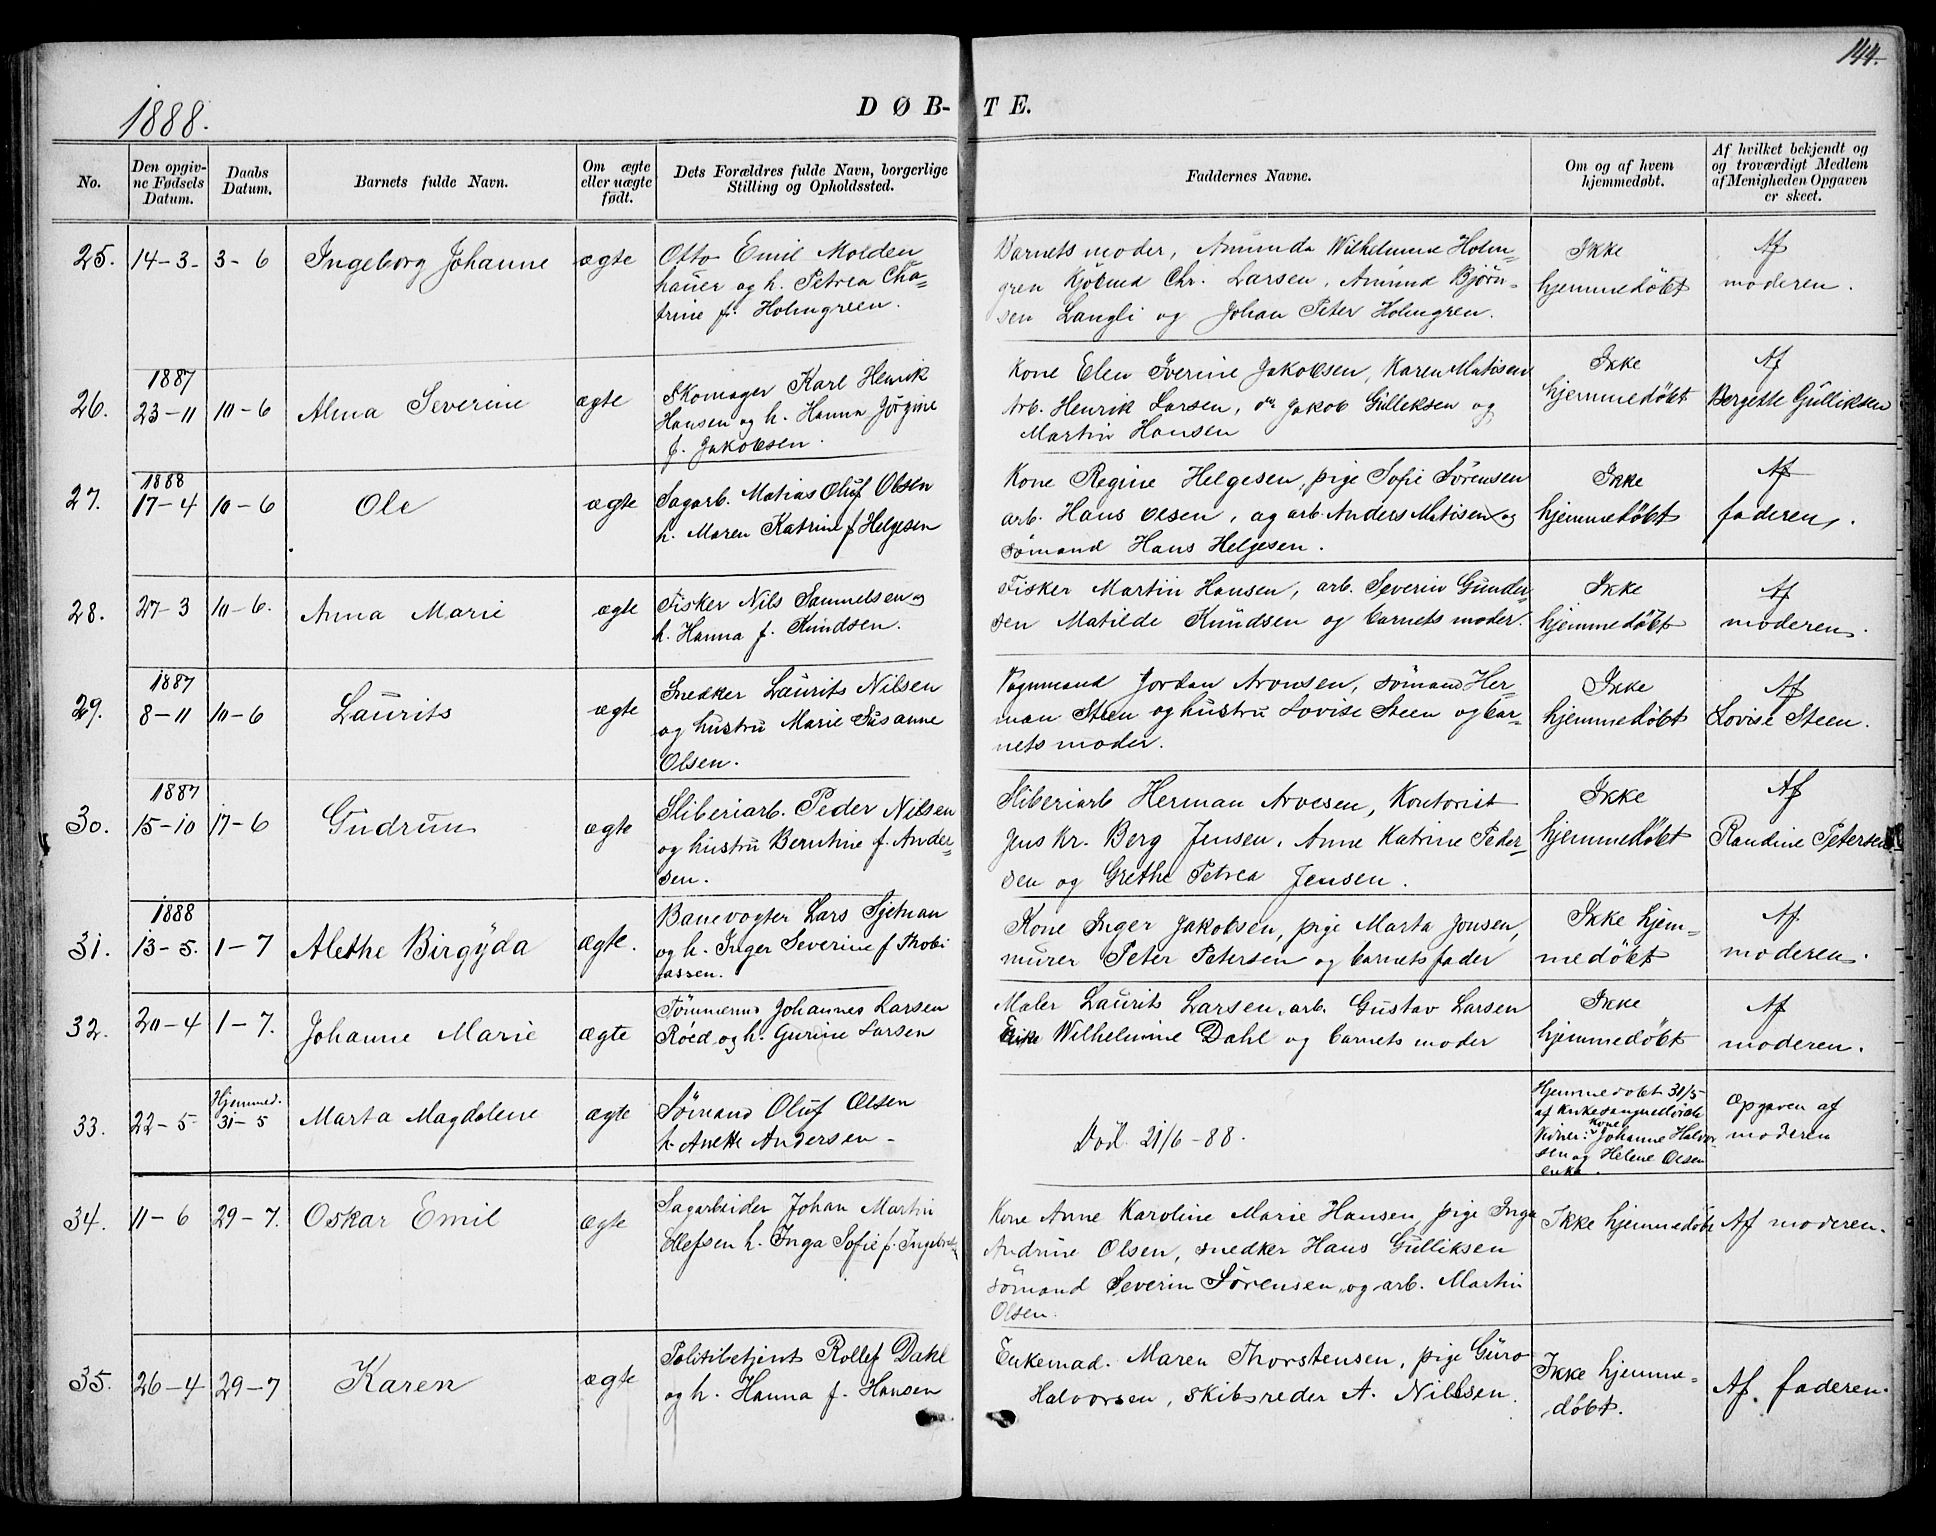 144.
1888.
DØB-TE.
No.
Den opgivne Fødsels Datum.
Daabs Datum.
Barnets fulde Navn.
Om ægte eller uægte født.
Dets Forældres fulde Navn, borgerlige Stilling og Opholdssted.
Faddernes Navne.
Om og af hvem hjemmedøbt.
Af hvilket bekjendt og og troværdigt Medlem af Menigheden Opgaven er skeet.
25. 14-3- 3-6 Ingeborg Johanne ægte
Otto Emil Molden
hauer og h. Petrea Cha-
trine f. Holmgreen.
Barnets moder, Amunda Wilhelmine Holm-
gren Kjøbmd Chr. Larsen, Amund Bjørn-
sen Langli og Johan Peter Holmgren.
Ikke
hjemmedøbt
Af
moderen.
1887
26. 23-11 10-6 Alma Severine ægte
Skomager Karl Henrik
Hansen og h. Hanna Jørgine
f. Jakobsen.
Kone Elen Iverine Jakobsen, Karen Matisen
Arb. Henrik Larsen, do Jakob Gulliksen og
Martin Hansen
Ikke
hjemmedøbt
Af
Bergette Gulliksen
1888
27. 17-4 10-6 Ole ægte
Sagarb. Matias Oluf Olsen
h. Maren Katrine f Helgesen
Kone Regine Helgesen, pige Sofie Sørensen
arb. Hans Olsen, og arb. Anders Matisen og
sømand Hans Helgesen.
Ikke
hjemmedøbt
Af
faderen.
28. 27-3 10-6. Anna Marie ægte
Fisker Nils Samuelsen og
h. Hanna f. Knudsen.
Fisker Martin Hansen, arb. Severin Gunder-
sen Matilde Knudsen og barnets moder.
Ikke
hjemmedøbt
Af
moderen.
1887
29. 8-11 10-6 Laurits ægte
Snedker Laurits Nilsen
og hustru Marie Susanne
Olsen.
Vognmand Jordan Aronsen, sømand Her-
man Steen og hustru Lovise Steen og bar-
nets moder.
Ikke
hjemmedøbt
Af
Lovise Steen.
1887
30. 15-10 17-6 Gudrun ægte
Sliberiarb. Peder Nilsen
og hustru Berntine f. Ander-
sen.
Sliberiarb Herman Arvesen, Kontorist
Jens Kr. Berg Jensen, Anne Katrine Peder-
sen og Grethe Petrea Jensen.
Ikke
hjemmedøbt
Af
Randine Petersen
1888
31. 13-5. 1-7 Alethe Birgyda ægte.
Banevogter Lars Sjetnan
og h. Inger Severine f Thobi
assen.
Kone Inger Jakobsen, pige Marta Jonsen,
murer Peter Petersen og barnets fader
Ikke hjem-
medøbt
Af
moderen.
32. 20-4 1-7. Johanne Marie ægte
Tømmermd Johannes Larsen
Røed og h. Gurine Larsen
Maler Laurits Larsen, arb. Gustav Larsen
Enke Wilhelmine Dahl og barnets moder
Ikke
hjemmedøbt
Af
moderen.
Hjemmed.
33. 22-5 31-5 Marta Magdalene ægte
Sømand Oluf Olsen
h. Anette Andersen -
Död 21/6-88.
Hjemmedøbt 31/5
af Kirkesanger
Kone
Vidner: Johanne Halvor
sen og Helene Olsen
enke.
Opgaven af
moderen
34. 11-6 29-7. Oskar Emil ægte
Sagarbeider Johan Martin
Ellefsen h. Inga Sofie f. Ingebret
Kone Anne Karoline Marie Hansen, pige Inga
Andrine Olsen, snedker Hans Gulliksen
sømand Severin Sørensen, og arb. Martin
Olsen.
Ikke hjemmedøbt
Af moderen.
35. 26-4 29-7 Karen ægte
Politibetjent Rollef Dahl
og h. Hanna f. Hansen
Enkemad. Maren Thorstensen, pige Guro
Halvorsen, skibsreder A. Nilssen.
Ikke hjemme-
døbt.
Af faderen.